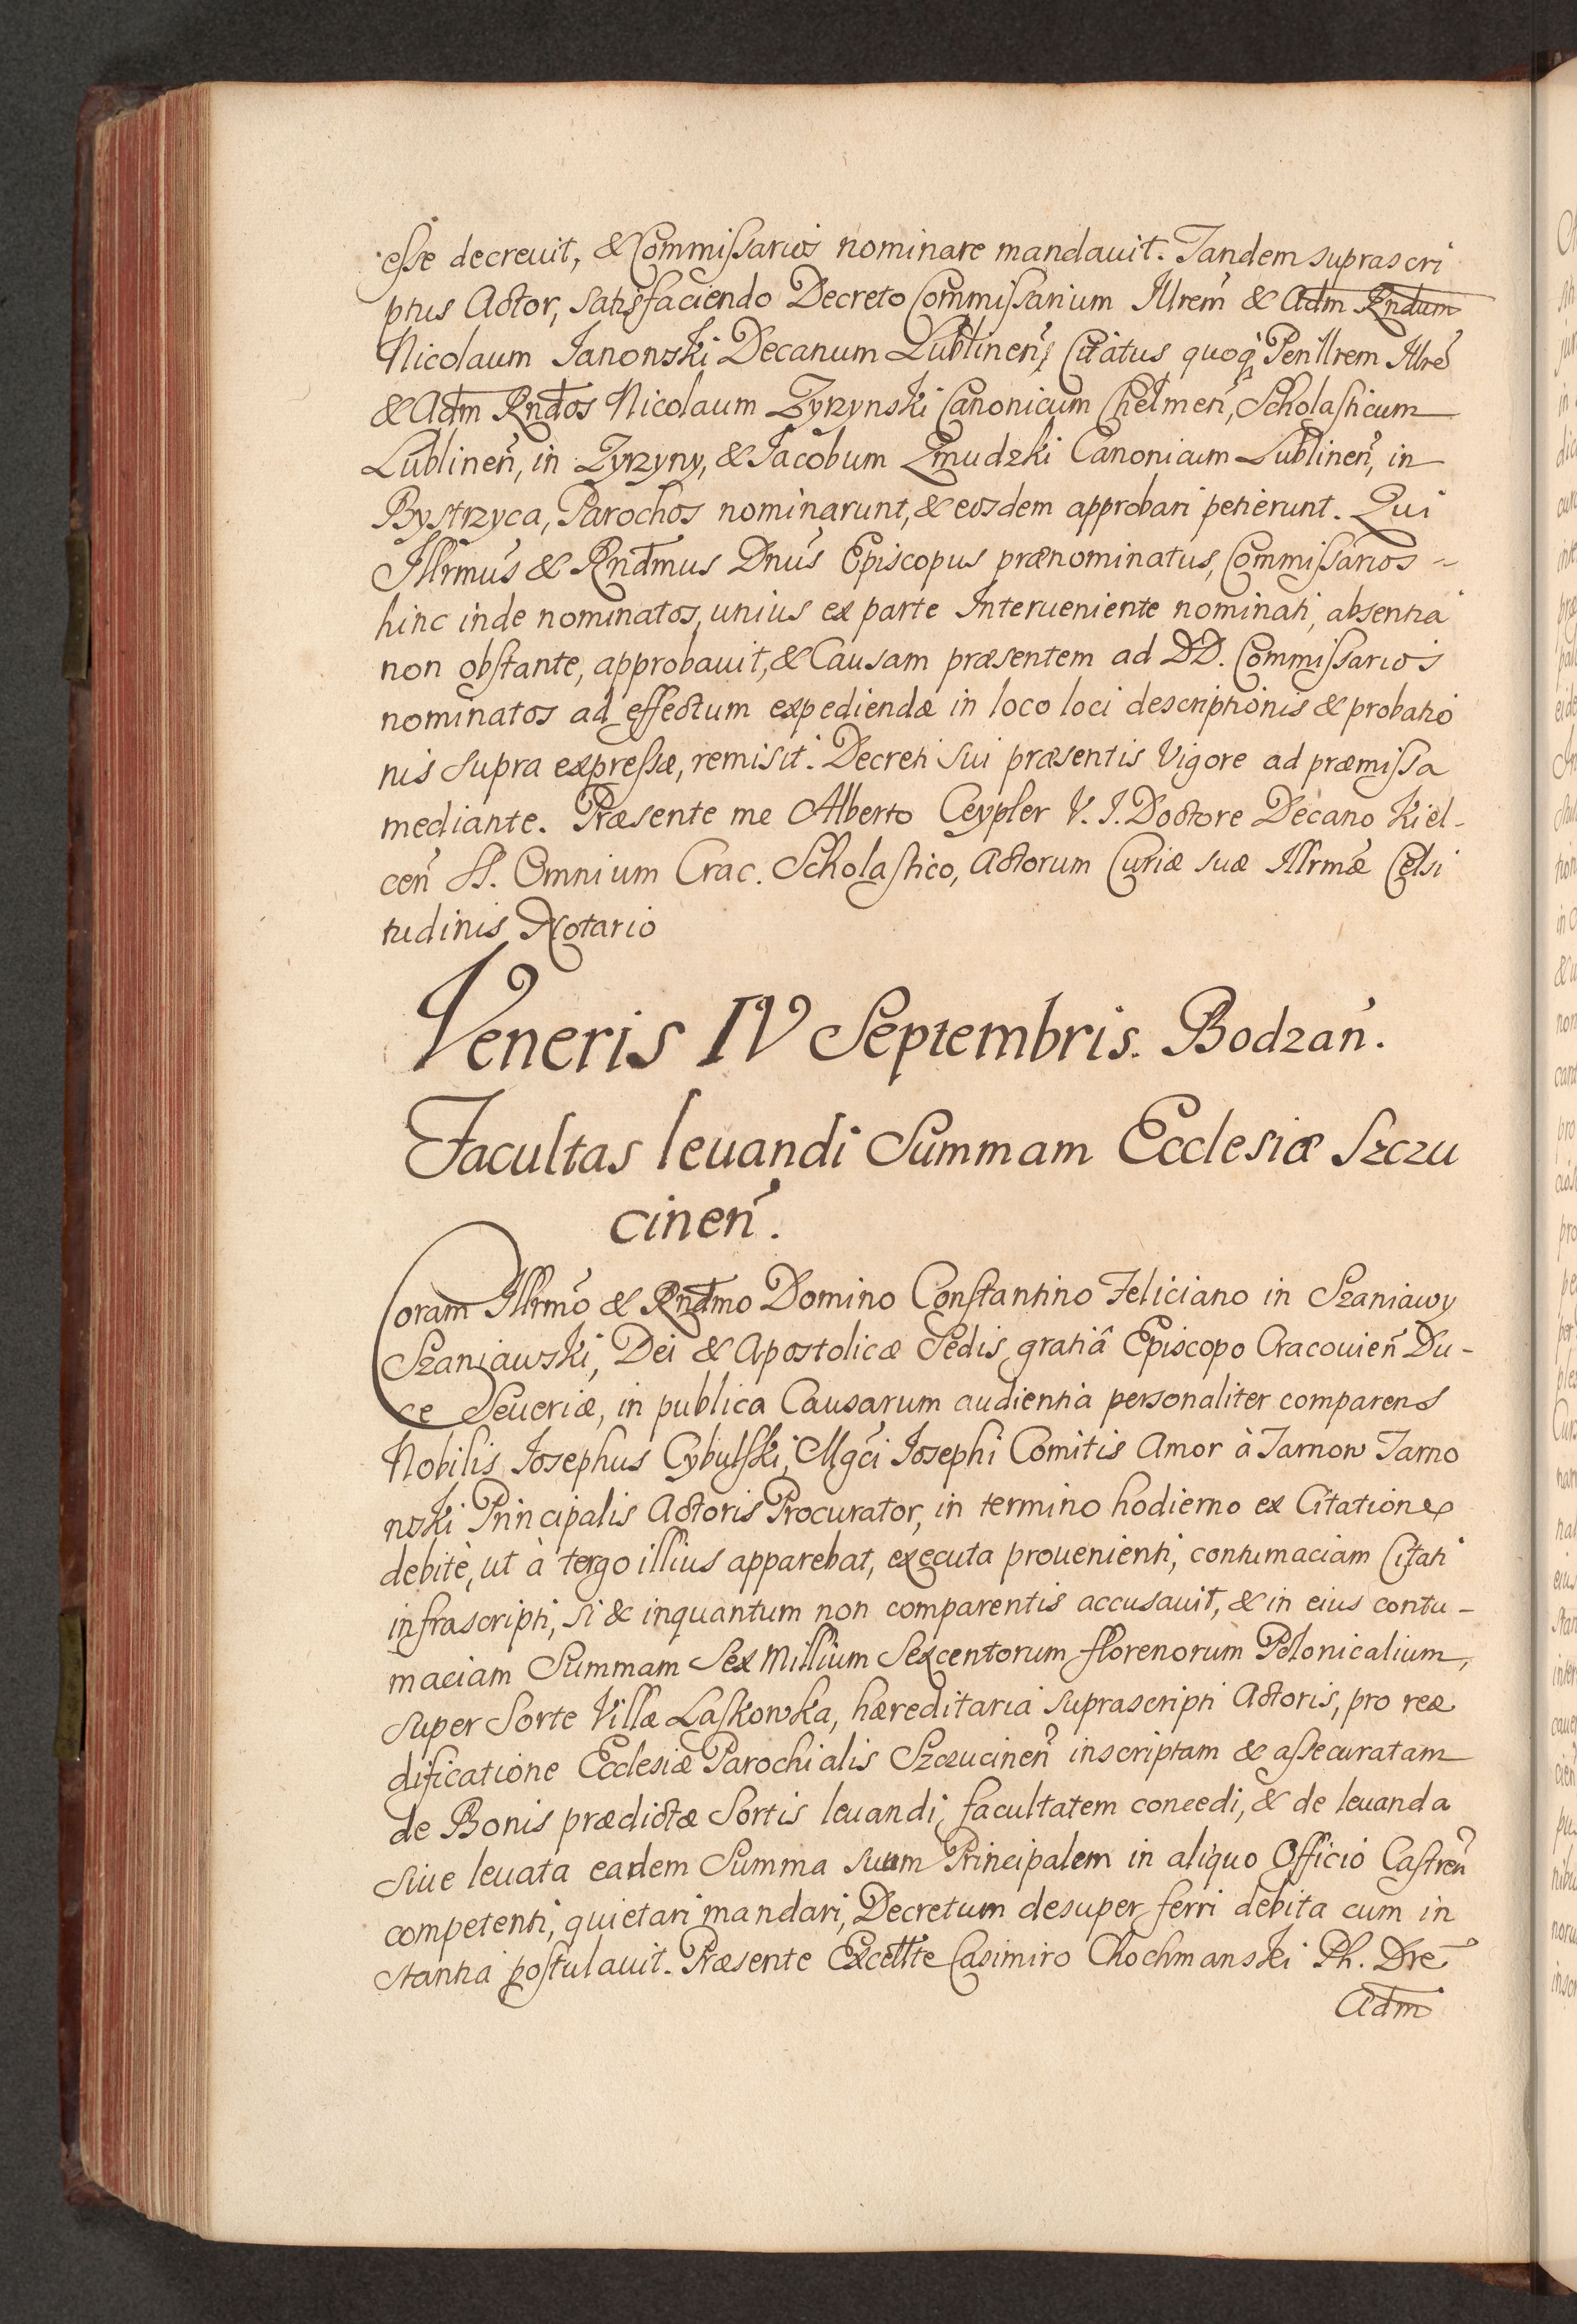 esse decreuit, & Commissarios nominare mandauit. Tandem suprascri
ptus Actor, satisfaciendo Decreto Commissarium Illrem̃ & Adm Rndum
Nicolaum Janowski Decanum Lublineñ, Citatus quoq, Perillrem Illrẽ
& Adm Rndos Nicolaum Zyrzynski Canonicum Chelmeñ, Scholasticum
Lublineñ, in Zyrzyny, & Jacobum Zmudzki Canonicum Lublineñ, in
Bystrzyca, Parochos nominarunt, & eosdem approbari petierunt. Qui
Illrmus & Rndmus Dnus Episcopus prænominatus, Commissarios
hinc inde nominatos, unius ex parte Interueniente nominati, absentia
non obstante, approbauit, & Causam præsentem ad DD. Commissarios
nominatos ad effectum expediendæ in loco loci descriptionis & probatio
nis supra expressæ, remisit. Decreti sui præsentis vigore ad præmissa
mediante. Præsente me Alberto Ceypler V. J. Doctore Decano Kiel-
ceñ SS. Omnium Crac. Scholastico, Actorum Curiæ suæ Illrmæ Celsi
tudinis Notario
Veneris IV Septembris. Bodzañ.
Facultas leuandi Summam Ecclesiæ Szczu
cineñ.
Coram Illrmo & Rndmo Domino Constantino Feliciano in Szaniawy
Szaniawski, Dei & Apostolicæ Sedis gratiâ Episcopo Cracouieñ Du-
ce Seueriæ, in publica Causarum audientia personaliter comparens
Nobilis Josephus Cybulski, Mgci Josephi Comitis Amor à Tarnow Tarno
wski Principalis Actoris Procurator, in termino hodierno ex Citatione
debitè, ut à tergo illius apparebat, executa prouenienti, contumaciam Citati
infrascripti, si & inquantum non comparentis accusauit, & in eius contu-
maciam Summam Sex Millium Sexcentorum florenorum Polonicalium,
super Sorte Villæ Laskowka, hæreditaria suprascripti Actoris, pro reæ
dificatione Ecclesiæ Parochialis Szczucineñ inscriptam & assecuratam
de Bonis prædictæ Sortis leuandi, facultatem concedi, & de leuanda
siue leuata eadem Summa suum Principalem in aliquo Officio Castreñ
competenti, quietari mandari, Decretum desuper ferri debita cum in
stantia postulauit. Præsente Excellte Casimiro Chochmanski Ph. Drẽ
Adm